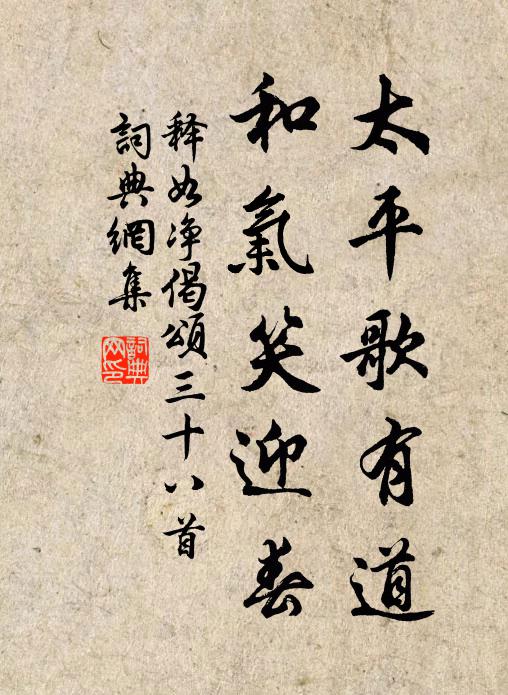 太平歌有道
和氣笑迎春
释如净偈頌三十八首
詞典網集
詞典網印